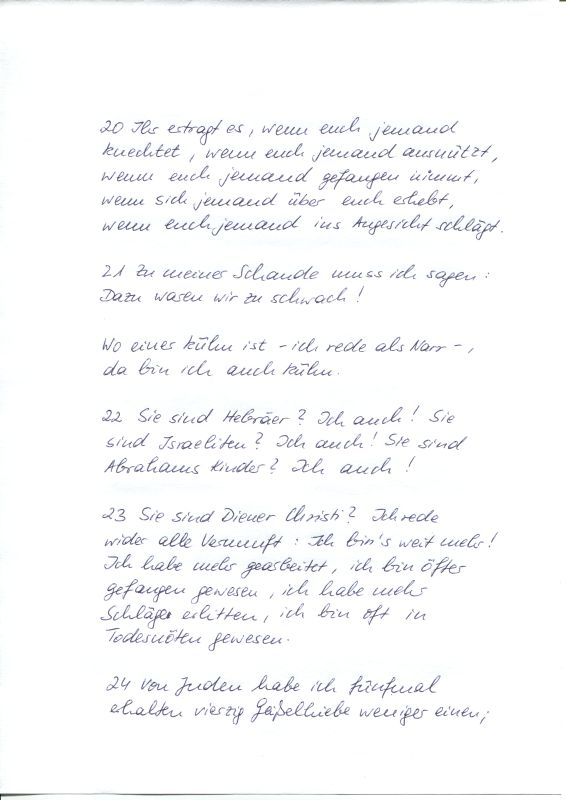 20 Ihr ertragt es, wenn euch jemand
knechtet, wenn euch jemand ausnützt,
wenn euch jemand gefangen nimmt,
wenn sich jemand über euch erhebt,
wenn euch jemand ins Angesicht schlägt.
21 Zu meiner Schande muss ich sagen:
Dazu waren wir zu schwach!
Wo einer kühn ist - ich rede als Narr -,
da bin ich auch kühn.
22 Sie sind Hebräer? Ich auch! Sie
sind Israeliten? Ich auch! Sie sind
Abrahams Kinder? Ich auch!
23 Sie sind Diener Christi? Ich rede
wider alle Vernunft: Ich bin's weit mehr!
Ich habe mehr gearbeitet, ich bin öfter
gefangen gewesen, ich habe mehr
Schläge erlitten, ich bin oft in
Todesnöten gewesen.
24 Von Juden habe ich fünfmal
erhalten vierzig Geißelhiebe weniger einen;